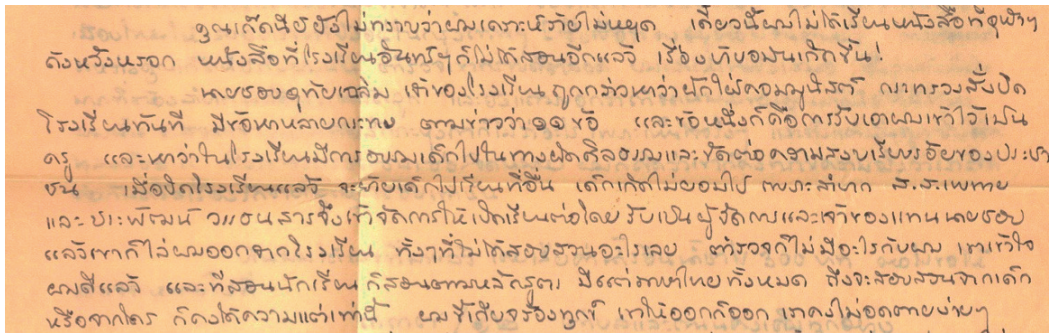 คุณเกิดถึงยังไม่ทราบว่าผมเคราะห์ร้ายไม่หยุด เดี๋ยวนี้ผมไม่ได้เรียนหนังสือที่จุฬาๆ
ดังหวังหรอก หนังสือที่โรงเรียนอินทร์ๆ ก็ไม่ได้สอนอีกแล้ว เรื่องยับยอมันเกิดขึ้น!
นายชอบอุทัยเฉลิม เจ้าของโรงเรียน ถูกกล่าวหาว่าฝักใฝ่คอมมูนิสต์ กระทรวงสั่งปิด
โรงเรียนทันที มีข้อหาหลายกระทง ตามข่าวว่า ๑๑ ข้อ และข้อหนึ่งก็คือการรับเอาผมเข้าไว้เป็น
ครู และหาว่าในโรงเรียนมีการอบรมเด็กไปในทางผิดศีลธรรมและขัดต่อความสงบเรียบร้อยของประชา
ชน เมื่อปิดโรงเรียนแล้ว จะย้ายเด็กไปเรียนที่อื่น เด็กเกิดไม่ยอมไป เพราะลำบาก
และ ประพัฒน์ วรรธนสารจึงเข้าจัดการให้เปิดเรียนต่อโดย รับเป็นผู้จัดการและเจ้าของแทนนายชอบ
แล้วเขาก็ไล่ผมออกจากโรงเรียน ทั้งๆ ที่ไม่ได้สอบสวนอะไรเลย ตำรวจก็ไม่มีอะไรกับผม เขาเข้าใจ
ผมดีแล้ว และที่สอนนักเรียนก็สอนตามหลักสูตร มีแต่ภาษาไทยทั้งหมด ถึงจะสอบสวนจากเด็ก
หรือจากใคร ก็คงได้ความแต่เท่านี้ ผมขี้เกียจร้องทุกข์ เขาให้ออกก็ออก เราคงไม่อดตายง่ายๆ